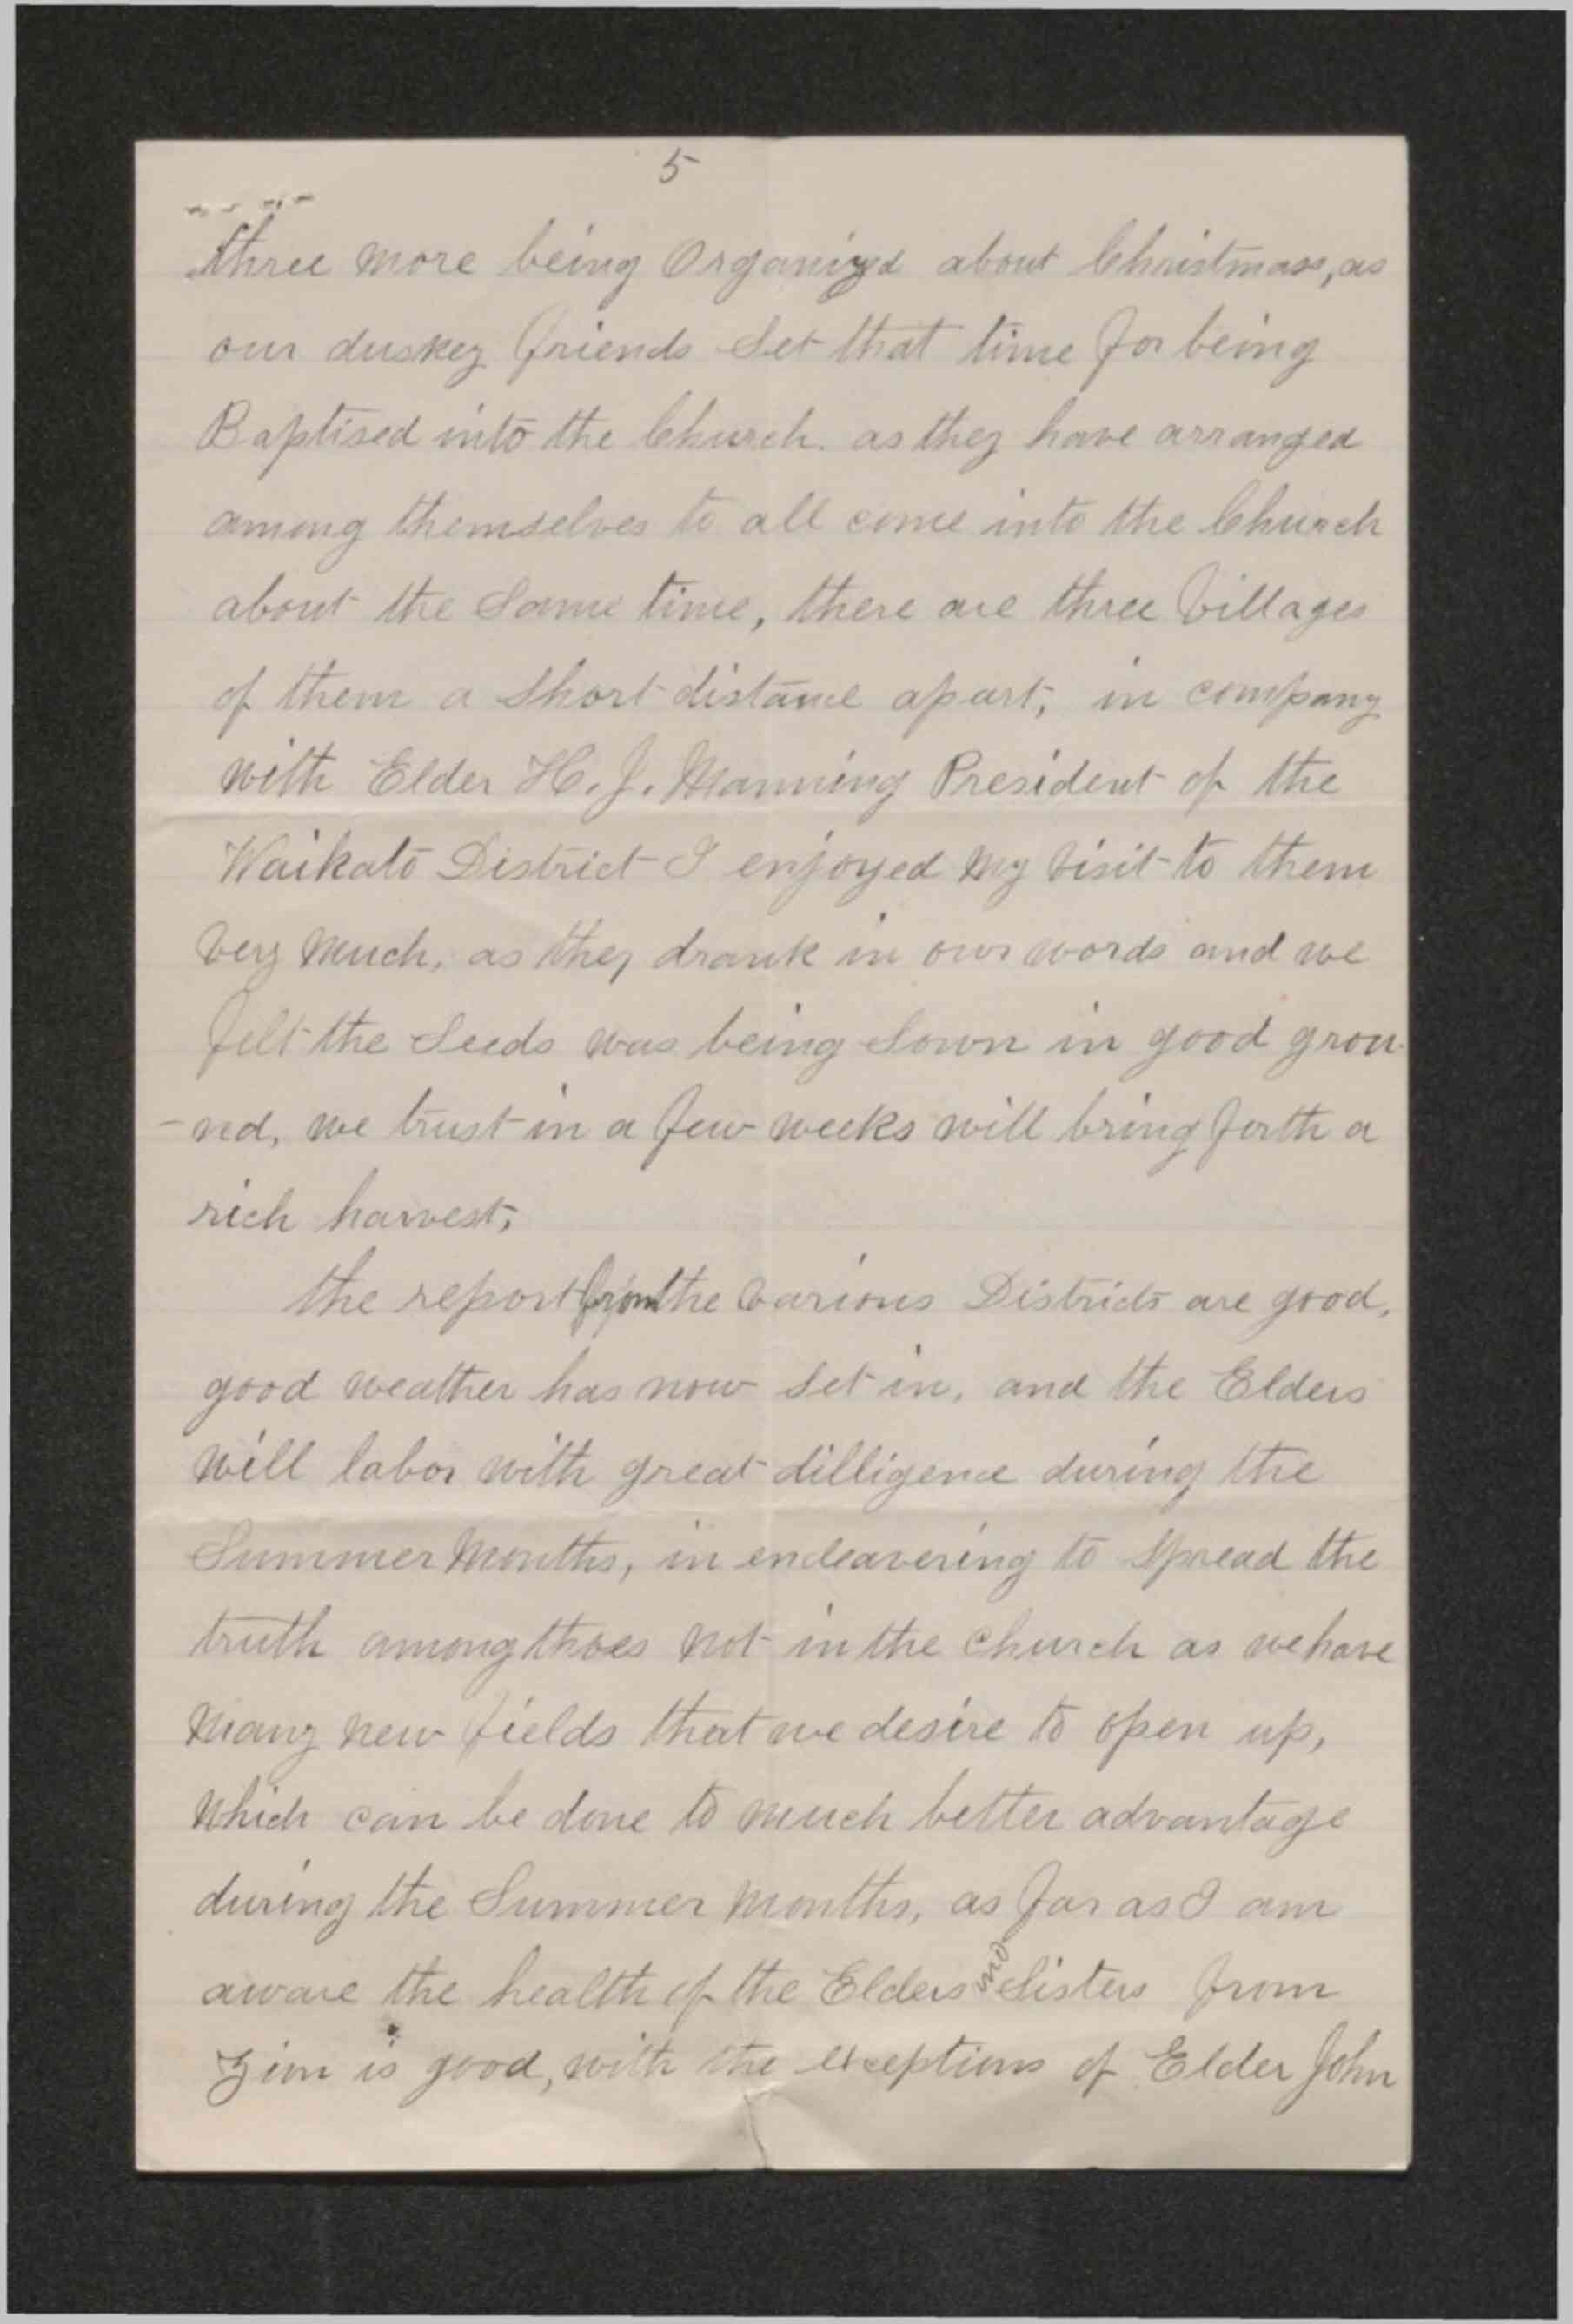 5
three more being Organized about Christmass, as
our duskey friends Set that time for being
Baptised into the Church. as they have arranged
among themselves to all come into the Church
about the Same time, there are three Villages
of them a Short distance apart, in company
with Elder H. J. Manning President of the
Waikato District I enjoyed My Visit to them
Very Much, as they drank in our words and we
felt the Seeds was being Sown in good grou-
-nd, we trust in a few weeks will bring forth a
rich harvest,
the report from the Various Districts are good,
good weather has now Set in, and the Elders
Will labor with great dilligence during the
Summer Months, in endeavering to Spread the
truth among thoes Not in the Church as we have
Many New fields that we desire to open up,
Which can be done to Much better advantage
during the Summer Months, as far as I am
aware the health of the Elders and Sisters from
Zion is good, with the exceptions of Elder John